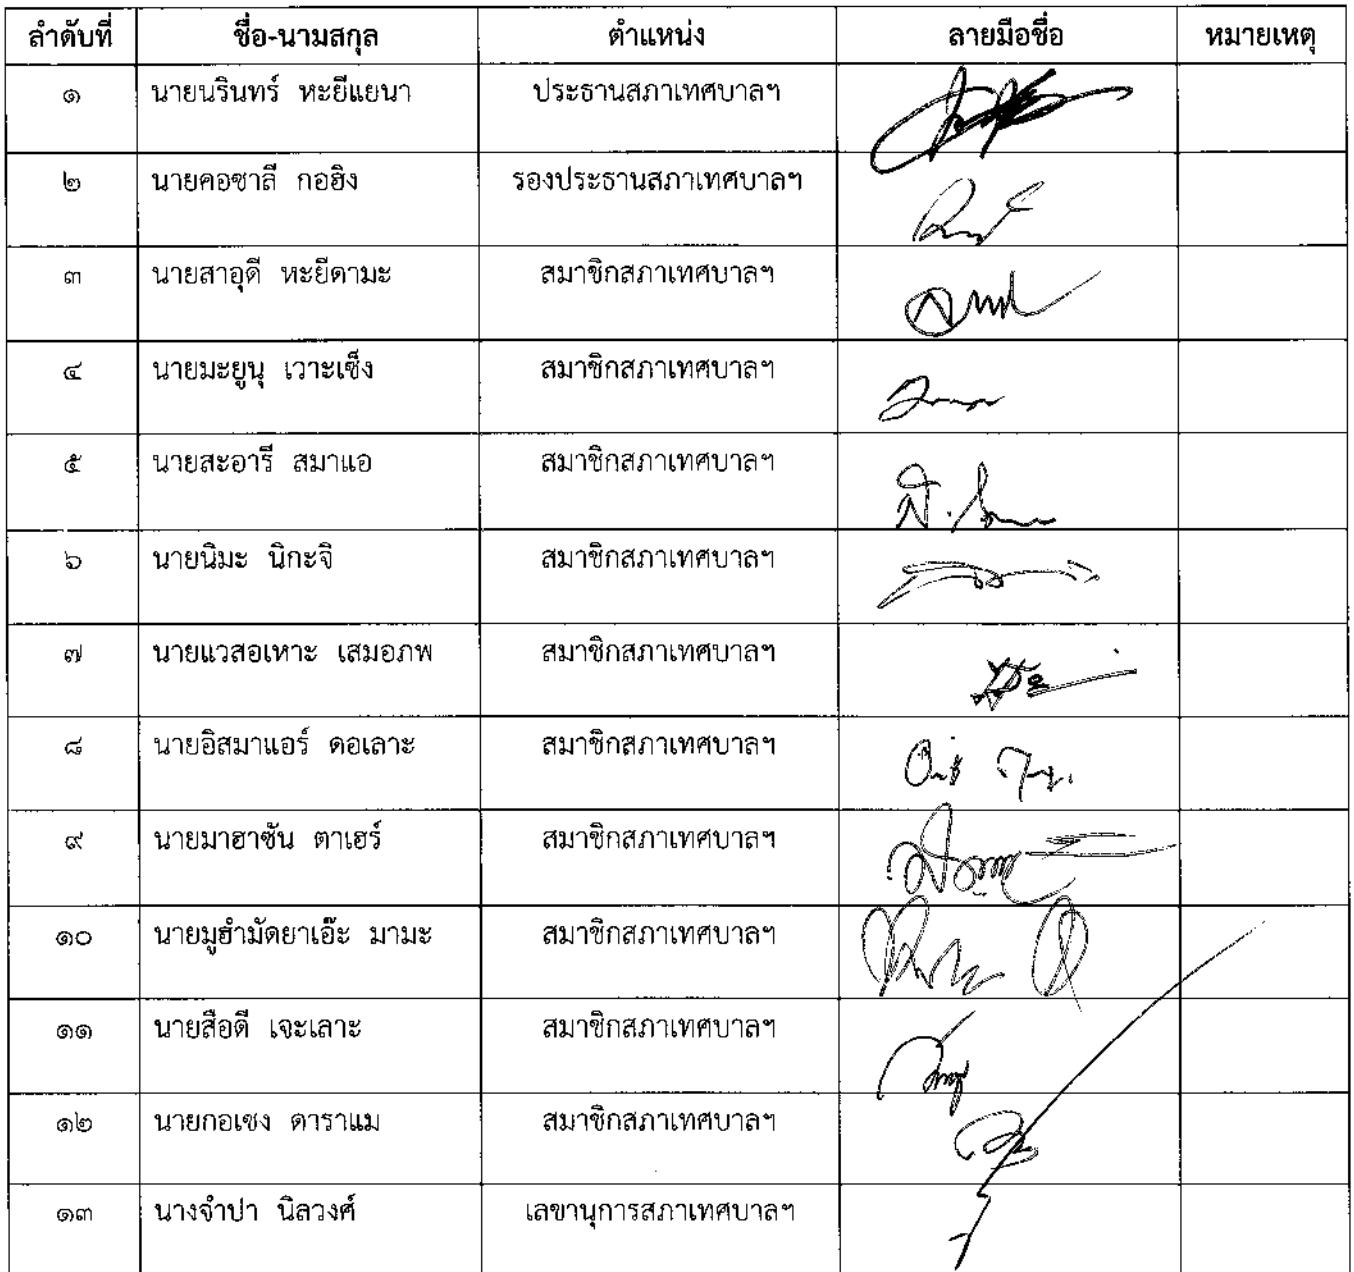 ลำดับที่ ชื่อ-นามสกุล ตำแหน่ง ลายมือชื่อ หมายเหตุ
๑ นายนรินทร์ หะยีแยนา ประธานสภาเทศบาลฯ
๒ นายคอซาลี กอฮิง รองประธานสภาเทศบาลฯ
๓ นายสาอุดี หะยีดามะ สมาชิกสภาเทศบาลฯ
๔ นายมะยูนุ เวาะเซ็ง สมาชิกสภาเทศบาลฯ
๕ นายสะอารี สมาแอ สมาชิกสภาเทศบาลฯ
๖ นายนิมะ นิกะจิ สมาชิกสภาเทศบาลฯ
๗ นายแวสอเหาะ เสมอภพ สมาชิกสภาเทศบาลฯ
๘ นายอิสมาแอร์ ดอเลาะ สมาชิกสภาเทศบาลฯ
๙ นายมาฮาซัน ตาเฮร์ สมาชิกสภาเทศบาลฯ
๑๐ นายมูฮำมัดยาเอ๊ะ มามะ สมาชิกสภาเทศบาลฯ
๑๑ นายสือดี เจะเลาะ สมาชิกสภาเทศบาลฯ
๑๒ นายกอเซง ดาราแม สมาชิกสภาเทศบาลฯ
๑๓ นางจำปา นิลวงศ์ เลขานุการสภาเทศบาลฯ